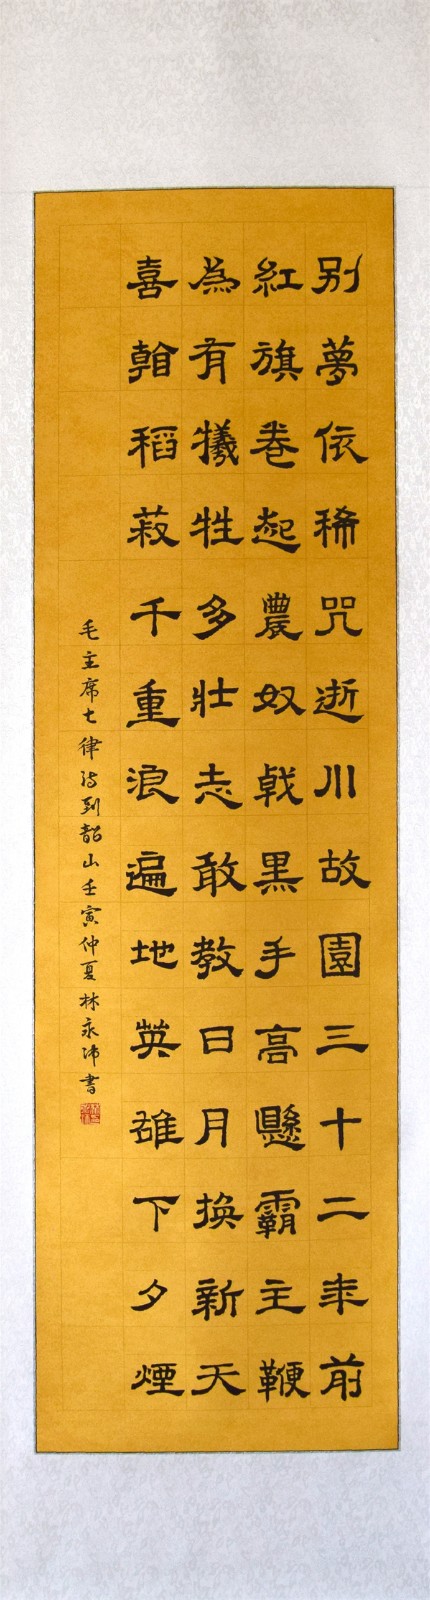 別夢依稀咒逝川故園三十二年前
紅旗卷起農奴戟黑手高懸霸主鞭
為有犧牲多壯志敢教日月換新天
喜看稻菽千重浪遍地英雄下夕煙
毛主席七律詩到韶山壬寅仲夏林永沛書